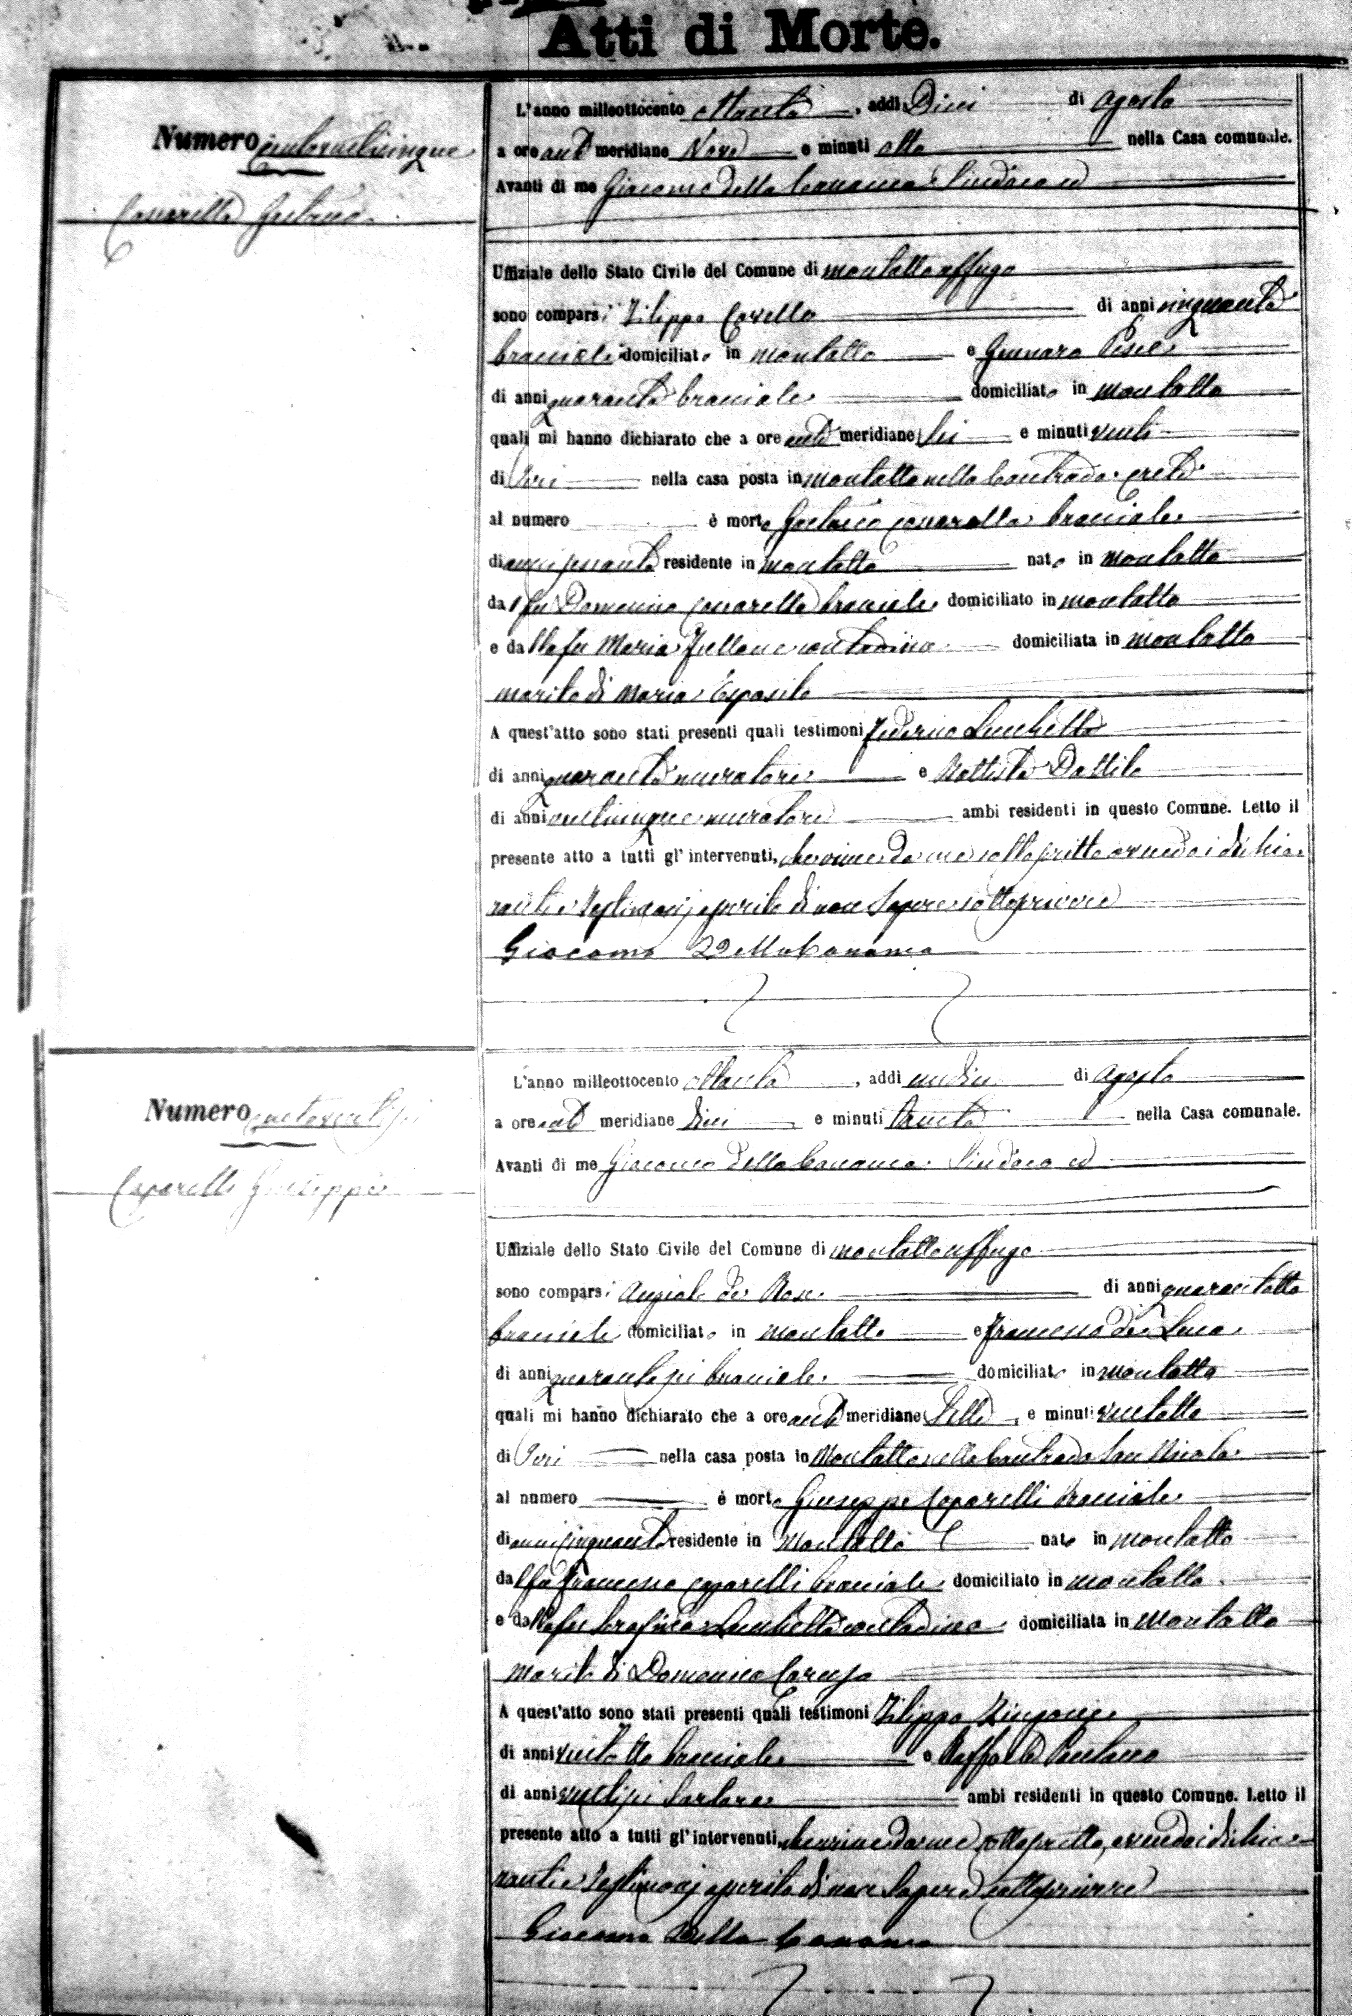 Atti di Morte.
Numero centoventicinque
L'anno milleottocento ottanta, addì Dieci di Agosto
a ore anti meridiane Nove e minuti otto nella Casa comunale.
Avanti di me Giacomo Della Cananea Sindaco ed
Uffiziale dello Stato Civile del Comune di Montalto Uffugo
sono comparsi Filippo Covello di anni cinquanta
bracciale domiciliato in Montalto e Gennaro
di anni quaranta bracciale domiciliato in Montalto
quali mi hanno dichiarato che a ore anti meridiane sei e minuti venti
di Ieri nella casa posta in Montalto nella Contrada
al numero è morto Gaetano bracciale
di anni residente in Montalto nato in Montalto
dal fu Domenico bracciale domiciliato in Montalto
e dalla fu Maria contadina domiciliata in Montalto
marito di Maria Esposito
A quest'atto sono stati presenti quali testimoni Federico Lucchetta
di anni quaranta muratore e Battista Dattilo
di anni venticinque muratore ambi residenti in questo Comune. Letto il
presente atto a tutti gl'intervenuti, che viene da me sottoscritto avendo i dichia
ranti e testimonj asserito di non sapere sottoscrivere
Giacomo Della Cananea
Numero centoventisei
Caparelli Giuseppe
L'anno milleottocento ottanta, addì undici di Agosto
a ore anti meridiane dieci e minuti trenta nella Casa comunale.
Avanti di me Giacomo Della Cananea Sindaco ed
Uffiziale dello Stato Civile del Comune di Montalto Uffugo
sono comparsi Angiolo De Rose di anni quarantotto
bracciale domiciliato in Montalto e Francesco De Luca
di anni quarantasei bracciale domiciliato in Montalto
quali mi hanno dichiarato che a ore anti meridiane Sette e minuti ventotto
di Ieri nella casa posta in Montalto nella Contrada San Nicola
al numero è morto Giuseppe Caparelli bracciale
di anni cinquanta residente in Montalto nato in Montalto
dal fu Francesco Caparelli bracciale domiciliato in Montalto
e dalla fu Serafina Lucchetta contadina domiciliata in Montalto
marito di Domenica Caruso
A quest'atto sono stati presenti quali testimoni Filippo
di anni ventotto bracciale e Raffaele Pantano
di anni ventisei sartore ambi residenti in questo Comune. Letto il
presente atto a tutti gl'intervenuti, che viene da me sottoscritto, avendo i dichia
ranti e testimonj asserito di non sapere sottoscrivere
Giacomo Della Cananea